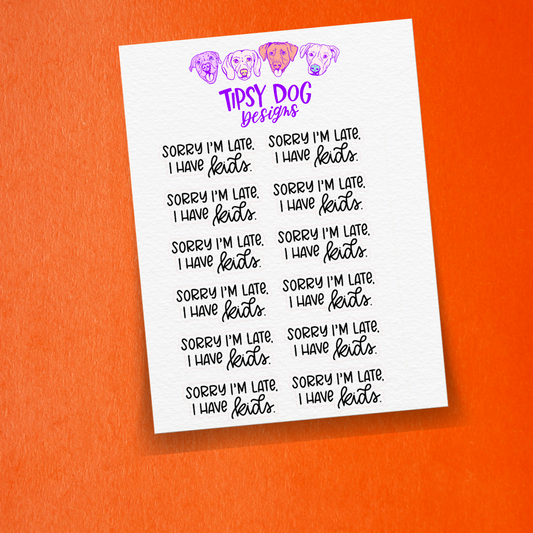 TIPSY DOG
Designs
SORRY I'M LATE,
I HAVE kids.
SORRY I'M LATE,
I HAVE kids.
SORRY I'M LATE,
I HAVE kids.
SORRY I'M LATE,
I HAVE kids.
SORRY I'M LATE,
I HAVE kids.
SORRY I'M LATE,
I HAVE kids.
SORRY I'M LATE,
I HAVE kids.
SORRY I'M LATE,
I HAVE kids.
SORRY I'M LATE,
I HAVE kids.
SORRY I'M LATE,
I HAVE kids.
SORRY I'M LATE,
I HAVE kids.
SORRY I'M LATE,
I HAVE kids.